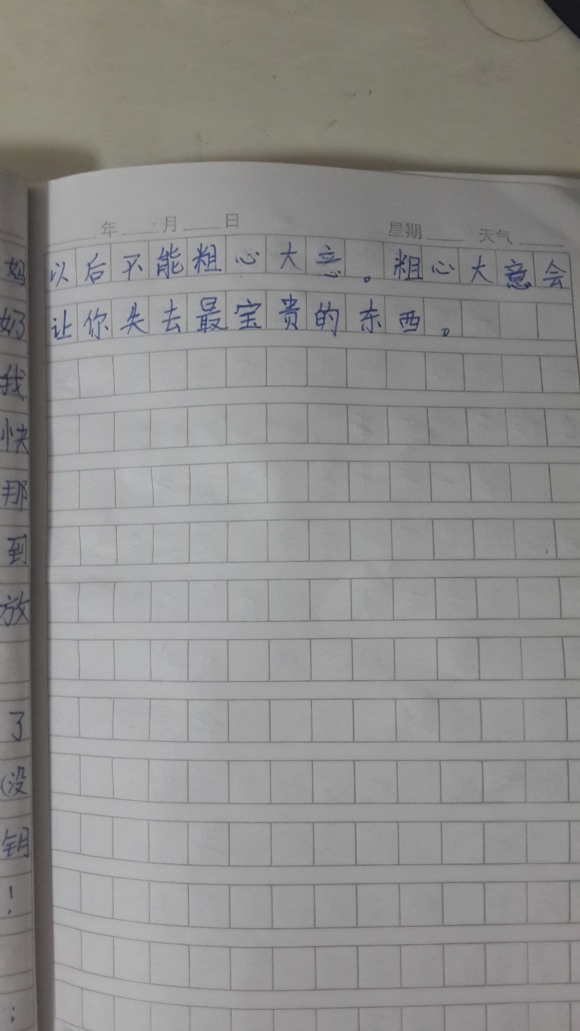 年 月 日 星期 天气
以后不能粗心大意。粗心大意会
让你失去最宝贵的东西。
妈
好
我
快
那
到
放
了
没
钥
！
：